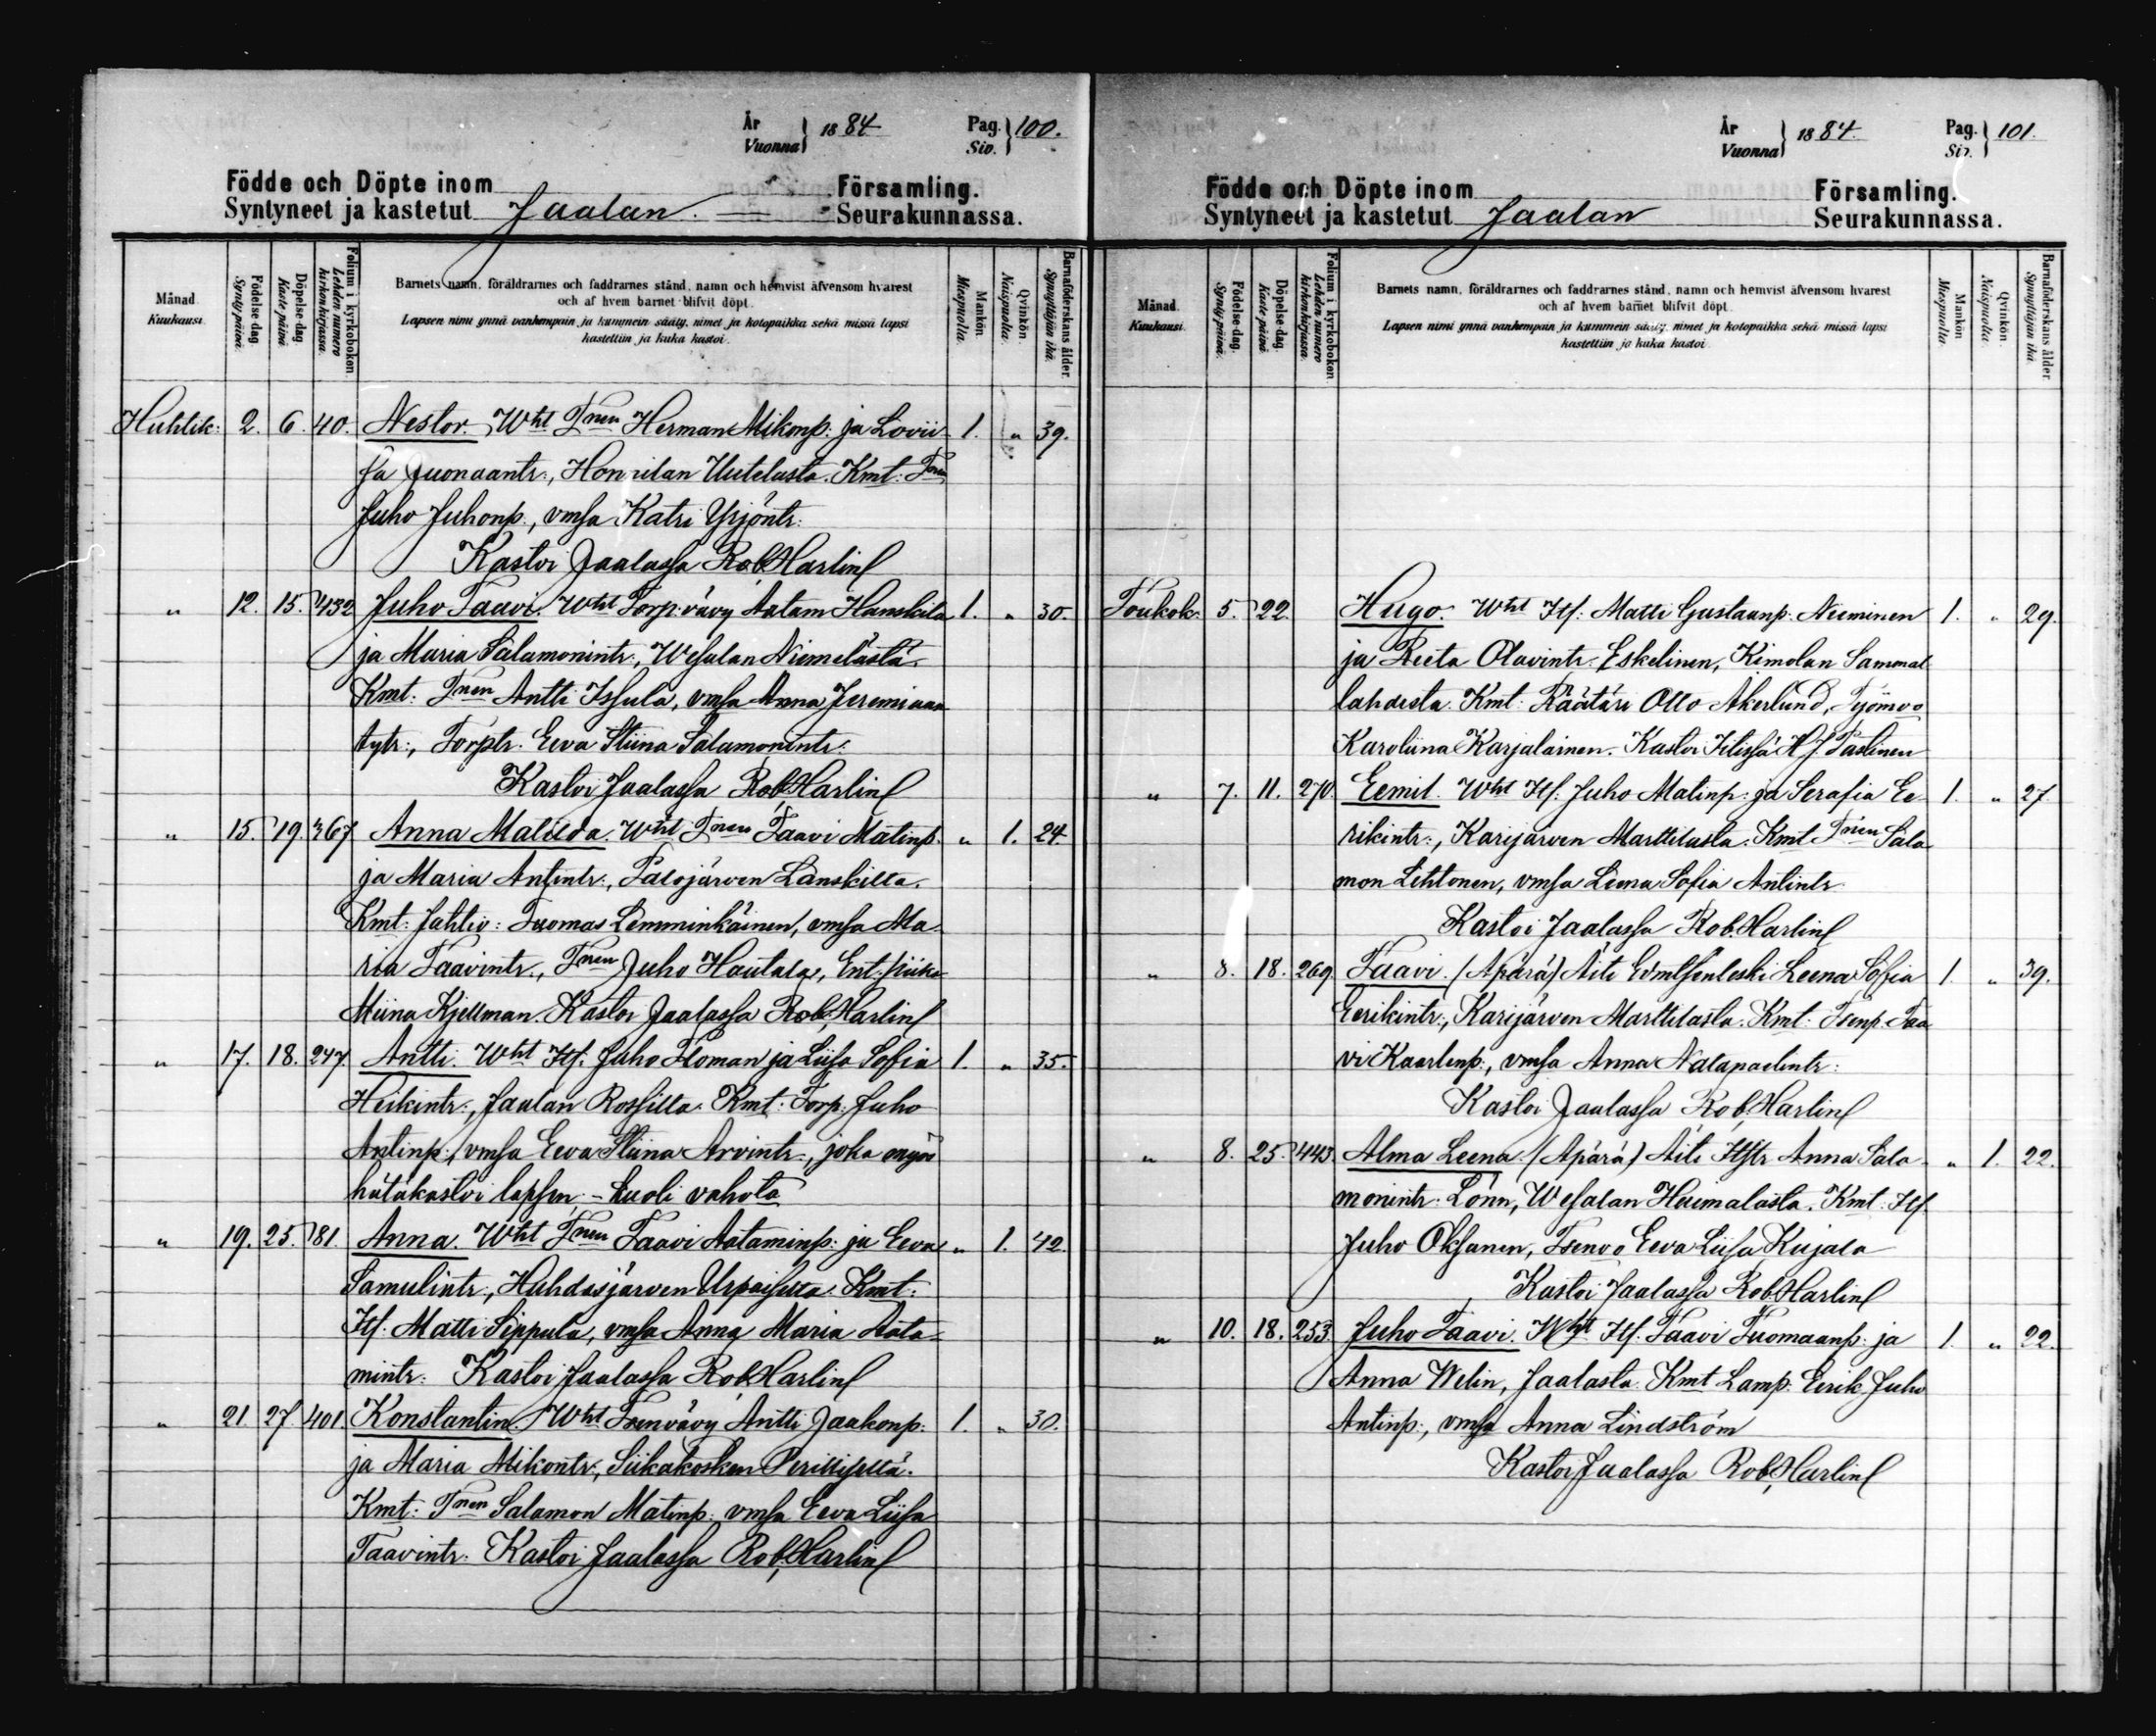 År
Vuonna } 1884
Pag.
Siv. } 100.
Födde och Döpte inom Församling.
Syntyneet ja kastetut Jaalan Seurakunnassa.
Månad
Kuukausi.
Födelse dag.
Synty päivä.
Döpelse dag.
Kaste päivä
Folium i kyrkoboken.
Lehden numero kirkonkirjassa.
Barnets namn, föräldrarnes och faddrarnes stånd, namn och hemvist äfvensom hvarest
och af hvem barnet blifvit döpt.
Lapsen nimi ynnä vanhempain ja kummein sääty, nimet ja kotopaikka sekä missä lapsi
kastettiin ja kuka kastoi.
Mankön.
Miespuolia.
Qvinkön.
Naispuolia.
Barnaföderskans ålder.
Synnyttäjän ikä.
Huhtik: 2. 6. 40. Nestor. Wht Tnen Herman Mikonp: ja Lovii- 1. " 39.
sa Juonaantr:, Honnilan Uutelasta. Kmt: Tnen
Juho Juhonp., vmsa Katri Yrjöntr:
Kastoi Jaalassa Rob. Harlin
" 12. 15. 432 Juho Taavi. Wht Torp: vävy Aatam Hanskila 1. " 30.
ja Maria Salamonintr:, Wesalan Niemelästä.
Kmt: Tnen Antti Issula, vmsa Anna Jeremiaan
tytr:, Torptr. Eeva Stiina Salamonintr:
Kastoi Jaalassa Rob. Harlin
" 15. 19. 367 Anna Matilda. Wht Tnen Taavi Matinp. " 1. 24.
ja Maria Antintr:, Palojärven Länskilta.
Kmt: Jahtiv: Tuomas Lemminkäinen, vmsa Ma-
ria Taavintr., Tnen Juho Hautala, Ent. piika
Miina Kjellman. Kastoi Jaalassa Rob. Harlin
" 17. 18. 247. Antti. Wht Its. Juho Floman ja Liisa Sofia 1. " 35.
Heikintr:, Jaalan Rossilta. Kmt: Torp: Juho
Antinp:, vmsa Eeva Stiina Arvintr:, joka myös
hätäkastoi lapsen. – kuoli vahota
" 19. 25. 81. Anna. Wht Tnen Taavi Aataminp: ja Eeva " 1. 42.
Samulintr:, Huhdasjärven Urpaiselta. Kmt:
Its. Matti Sippula, vmsa Anna Maria Aata-
mintr: Kastoi Jaalassa Rob. Harlin
" 21. 27. 401. Konstantin. Wht Tnenvävy Antti Jaakonp: 1. " 30.
ja Maria Mikontr:, Siikakosken Perittyseltä.
Kmt: Tnen Salamon Matinp: vmsa Eeva Liisa
Taavintr: Kastoi Jaalassa Rob. Harlin
År
Vuonna } 1884.
Pag.
Siv. } 101.
Födde och Döpte inom Församling.
Syntyneet ja kastetut Jaalan Seurakunnassa.
Månad.
Kuukausi.
Födelse dag.
Synty päivä.
Döpelse dag.
Kaste päivä
Folium i kyrkoboken.
Lehden numero kirkonkirjassa.
Barnets namn, föräldrarnes och faddrarnes stånd, namn och hemvist äfvensom hvarest
och af hvem barnet blifvit döpt.
Lapsen nimi ynnä vanhempain ja kummein sääty, nimet ja kotopaikka sekä missä lapsi
kastettiin ja kuka kastoi.
Mankön
Miespuolia.
Qvinkön.
Naispuolia.
Barnaföderskans ålder
Synnyttäjän ikä.
Toukok: 5. 22. Hugo. Wht Its: Matti Gustaanp: Nieminen 1. " 29.
ja Reeta Olavintr. Eskelinen, Kimolan Sammal
lahdesta. Kmt: Räätäri Otto Åkerlund, Työmvo
Karoliina Karjalainen. Kastoi Iitissä H. J. Taslinen
" 7. 11. 270. Eemil. Wht Its. Juho Matinp: ja Serafia Ee- 1. " 27.
rikintr:, Karijärven Marttilasta. Kmt Tnen Sala-
mon Lehtonen, vmsa Leena Sofia Antintr.
Kastoi Jaalassa Rob. Harlin
" 8. 18. 269. Taavi. (Äpärä) Äiti Edmlsenleski Leena Sofia 1. " 39.
Eerikintr:, Karijärven Marttilasta. Kmt: Tsenp. Taa
vi Kaarlenp:, vmsa Anna Natapaelintr:
Kastoi Jaalassa Rob. Harlin
" 8. 25. 443. Alma Leena. (Äpärä) Äiti Itstr Anna Sala- " 1. 22.
monintr. Lönn, Wesalan Heimalasta. Kmt: Its.
Juho Oksanen, Tsenvo Eeva Liisa Kujala
Kastoi Jaalassa Rob. Harlin
" 10. 18. 253. Juho Taavi. Wht Its. Taavi Tuomaanp: ja 1. " 22.
Anna Welin, Jaalasta. Kmt Lamp. Eerik Juho
Antinp:, vmsa Anna Lindström
Kastoi Jaalassa Rob. Harlin